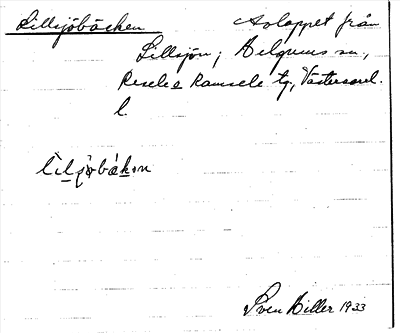 Lillsjöbäcken Avloppet från
Lillsjön, Helgums sn,
Resele o Ramsele tg, Västernorrl.
l.
Sven Hiller 1933